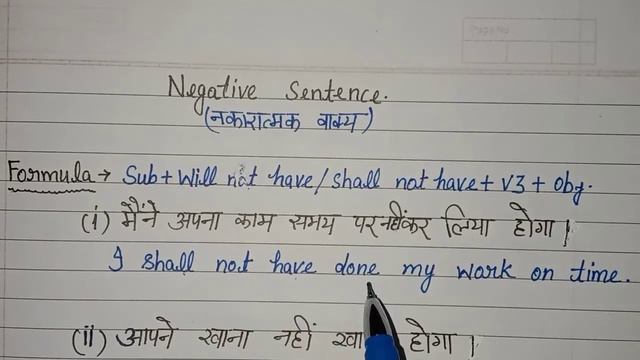 Page No.
Negative Sentence.
(नकारात्मक वाक्य)
Formula → Sub + Will not have / Shall not have + V3 + Obj.
(i) मैंने अपना काम समय पर नहीं कर लिया होगा।
I shall not have done my work on time.
(ii) आपने खाना नहीं होगा।